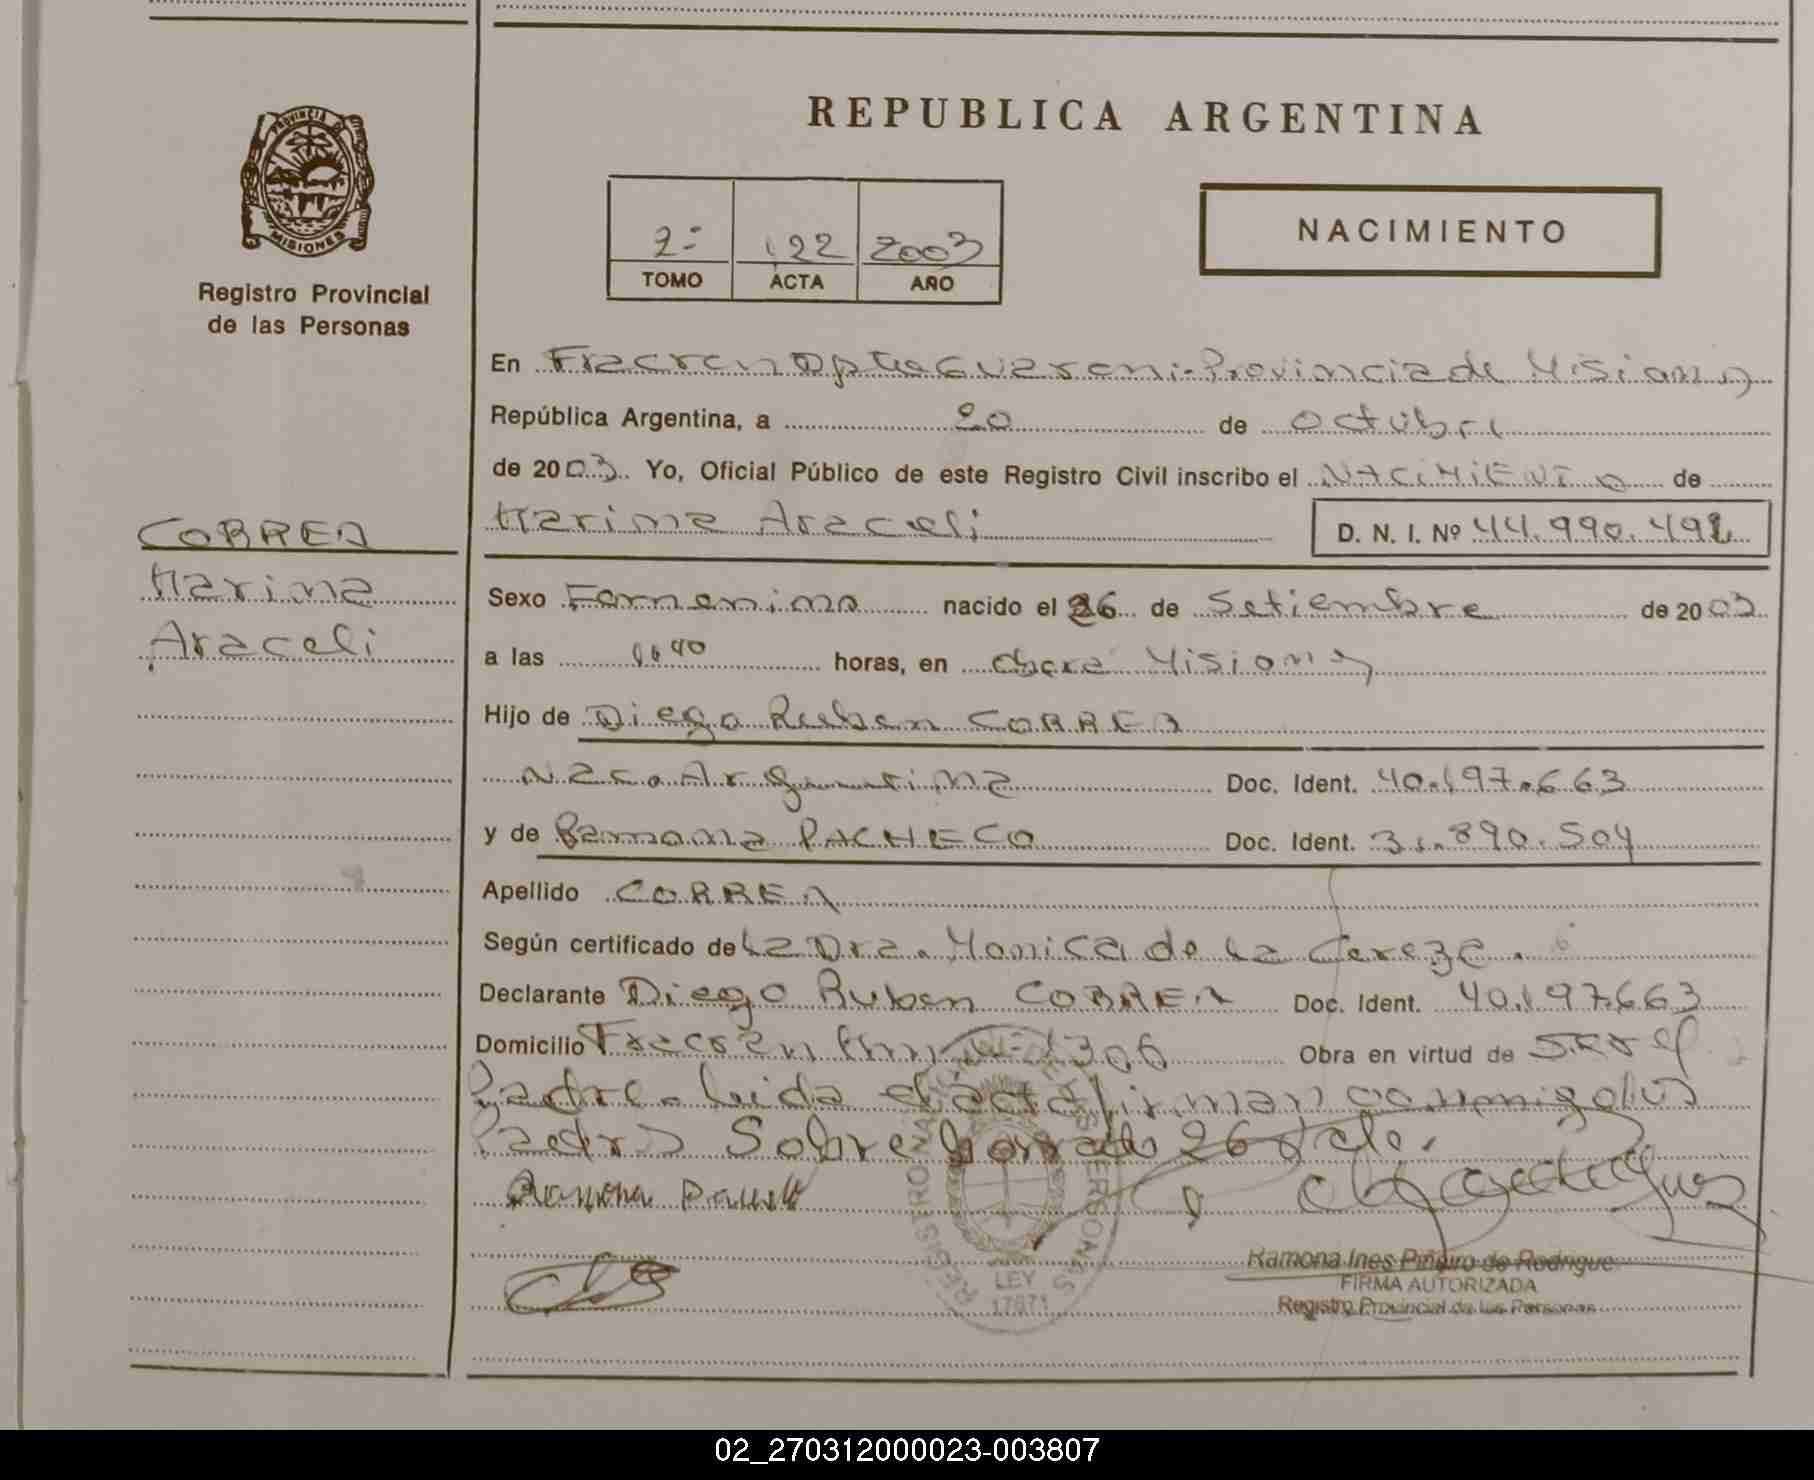 REPUBLICA ARGENTINA
PROVINCIA DE MISIONES
Registro Provincial
de las Personas
2º 122 2003
TOMO ACTA AÑO
NACIMIENTO
En Fracran Dpto Guarani-Provincia de Misiones
República Argentina, a 20 de octubre
de 2003. Yo, Oficial Público de este Registro Civil inscribo el NACIMIENTO de
Marina Araceli D. N. I. Nº 44.990.492
CORREA
Marina
Araceli
Sexo Femenino nacido el 26 de Setiembre de 2003
a las horas, en Oberá Misiones
Hijo de Diego Ruben CORREA
Nac. Argentina Doc. Ident. 40.197.663
y de Ramona PACHECO Doc. Ident. 31.890.504
Apellido CORREA
Según certificado de La Dra. Monica de La
Declarante Diego Ruben CORREA Doc. Ident. 40.197.663
Domicilio Fracrán 1306 Obra en virtud de ser el
Padre. leida el acta firman conmigo los
Padres Sobre borrado 26 Vale.
Ramona
REGISTRO NAC. DE LAS PERSONAS
LEY
17671
Ramona Ines Piñeiro de Rodrigue
FIRMA AUTORIZADA
Registro Provincial de las Personas
02_270312000023-003807